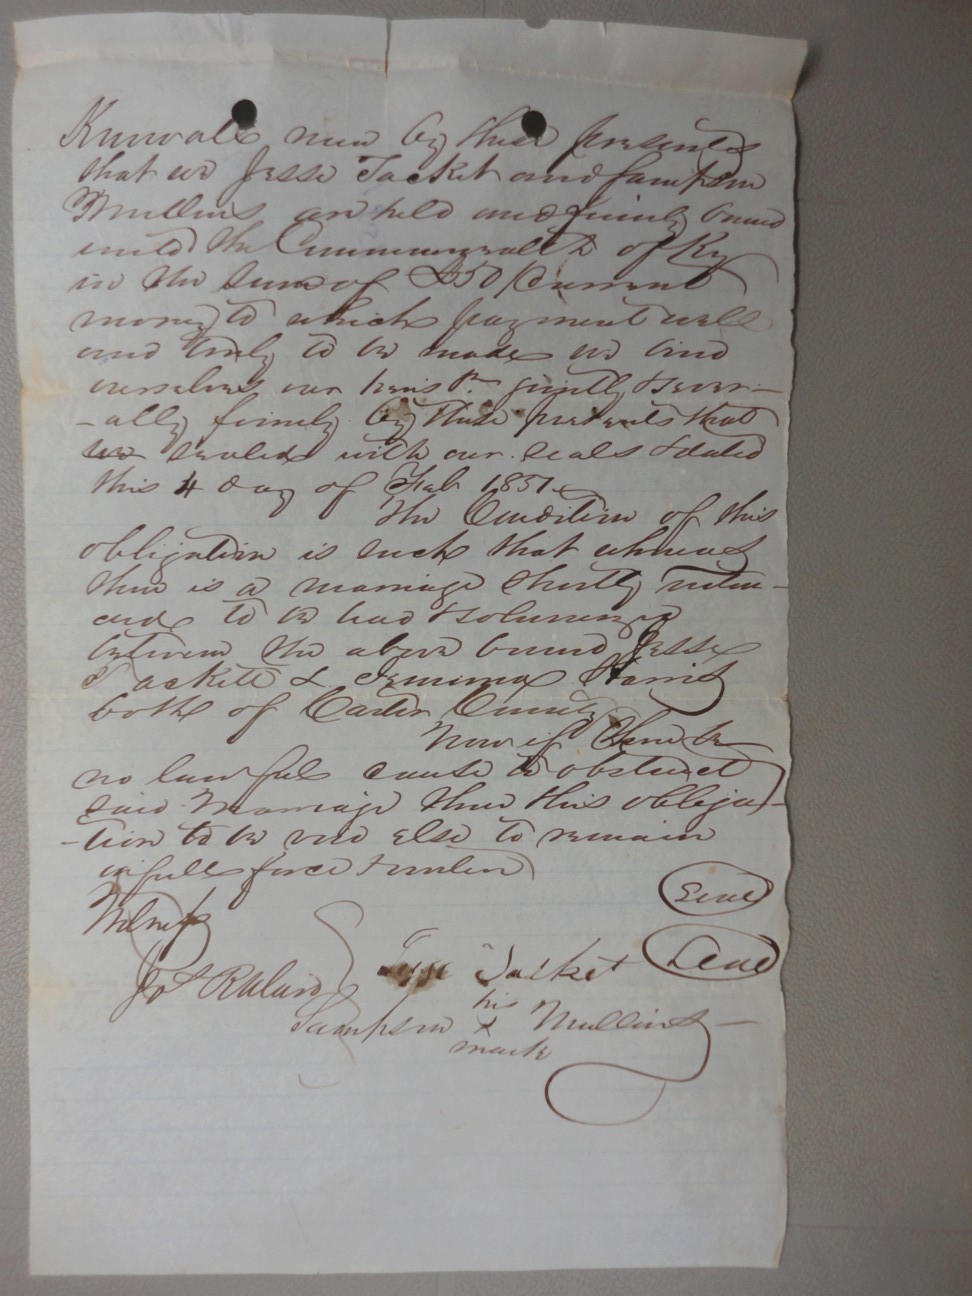 Know all men by these presents
that we Jesse Tacket and Sampson
Mullins are held and firmly bound
unto the Commonwealth of Ky
in the sum of £50 Current
money to which payment well
and truly to be made we bind
ourselves our heirs &c jointly & sever-
-ally firmly by these presents that
we sealed with our seals & dated
this 4 day of Feb 1851.
The Condition of this
obligation is such that whereas
there is a marriage shortly inten-
ded to be had & solemnized
between the above bound Jesse
Tackett & Jemima Harris
both of Carter County
Now if there be
no lawful cause to obstruct
said Marriage then this obliga-
-tion to be void else to remain
in full force & virtue
Seal
Witness
Jesse Tacket Seal
Jos
Sampson his x mark Mullins